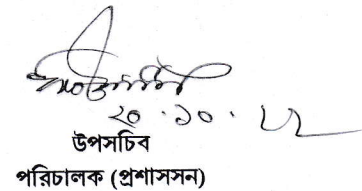 ২০.১০.২২
উপসচিব
পরিচালক (প্রশাসসন)